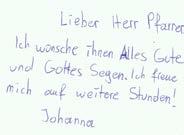 Lieber Herr Pfarrer
Ich wünsche ihnen Alles Gute
und Gottes Segen. Ich freue
mich auf weitere Stunden!
Johanna